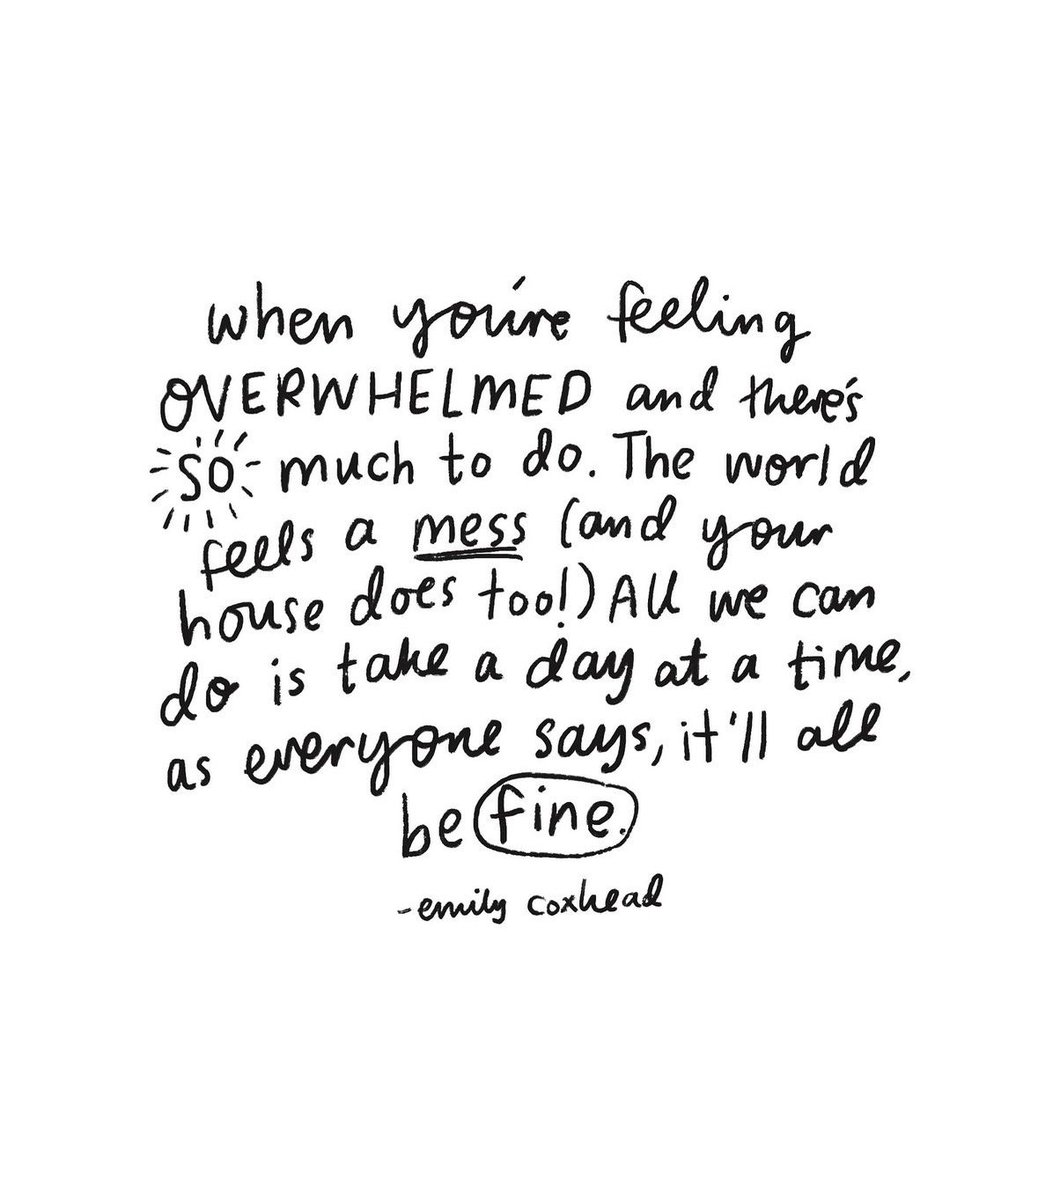 when you're feeling
OVERWHELMED and there's
so much to do. The world
feels a mess (and your
house does too!) All we can
do is take a day at a time,
as everyone says, it'll all
be fine.
-emily coxhead